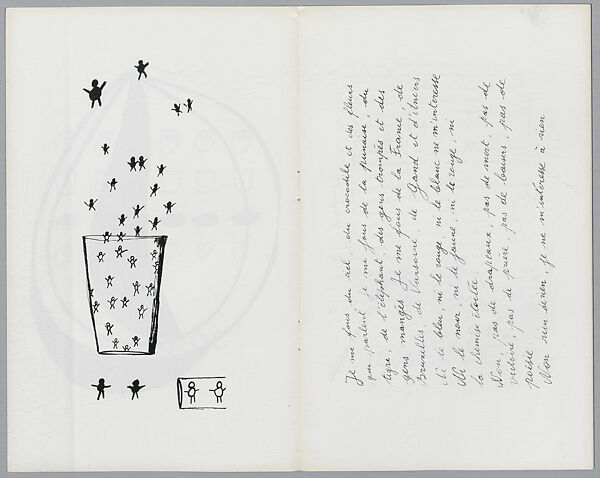 Je me fous du sel, du crocodile et des fleurs
qui parlent je me fous de la punaise, du
tigre, de l'éléphant, des gens trompés et des
gens mangés je me fous de la France, de
Bruxelles, de Varsovie, de Gand et d'
Ni le bleu, ni le rouge, ni le blanc ne m'intéresse
Ni le noir, ni le jaune, ni le rouge, ni
la chemise étoilée
Non, pas de drapeaux, pas de mort, pas de
victoire, pas de prière, pas de baisers, pas de
poésie
Non rien de rien, je ne m'intéresse à rien